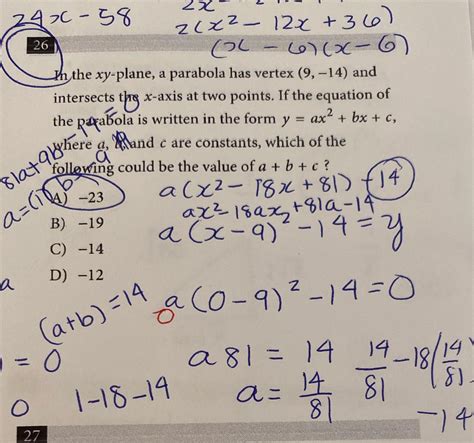 24x - 58
2(x² - 12x + 36)
(x - 6)(x - 6)
26
In the xy-plane, a parabola has vertex (9, −14) and
intersects the x-axis at two points. If the equation of
the parabola is written in the form y = ax² + bx + c,
where a, b, and c are constants, which of the
following could be the value of a + b + c ?
81a+9b-14=0
A) −23
B) −19
C) −14
D) −12
a(x² - 18x + 81) - 14
ax² - 18ax + 81a - 14
a(x-9)² - 14 = y
(a+b) = 14
a(0-9)² - 14 = 0
0
= 0
a 81 = 14
a = 14/81
14/81 - 18(14/81
- 14
0
1-18-14
27